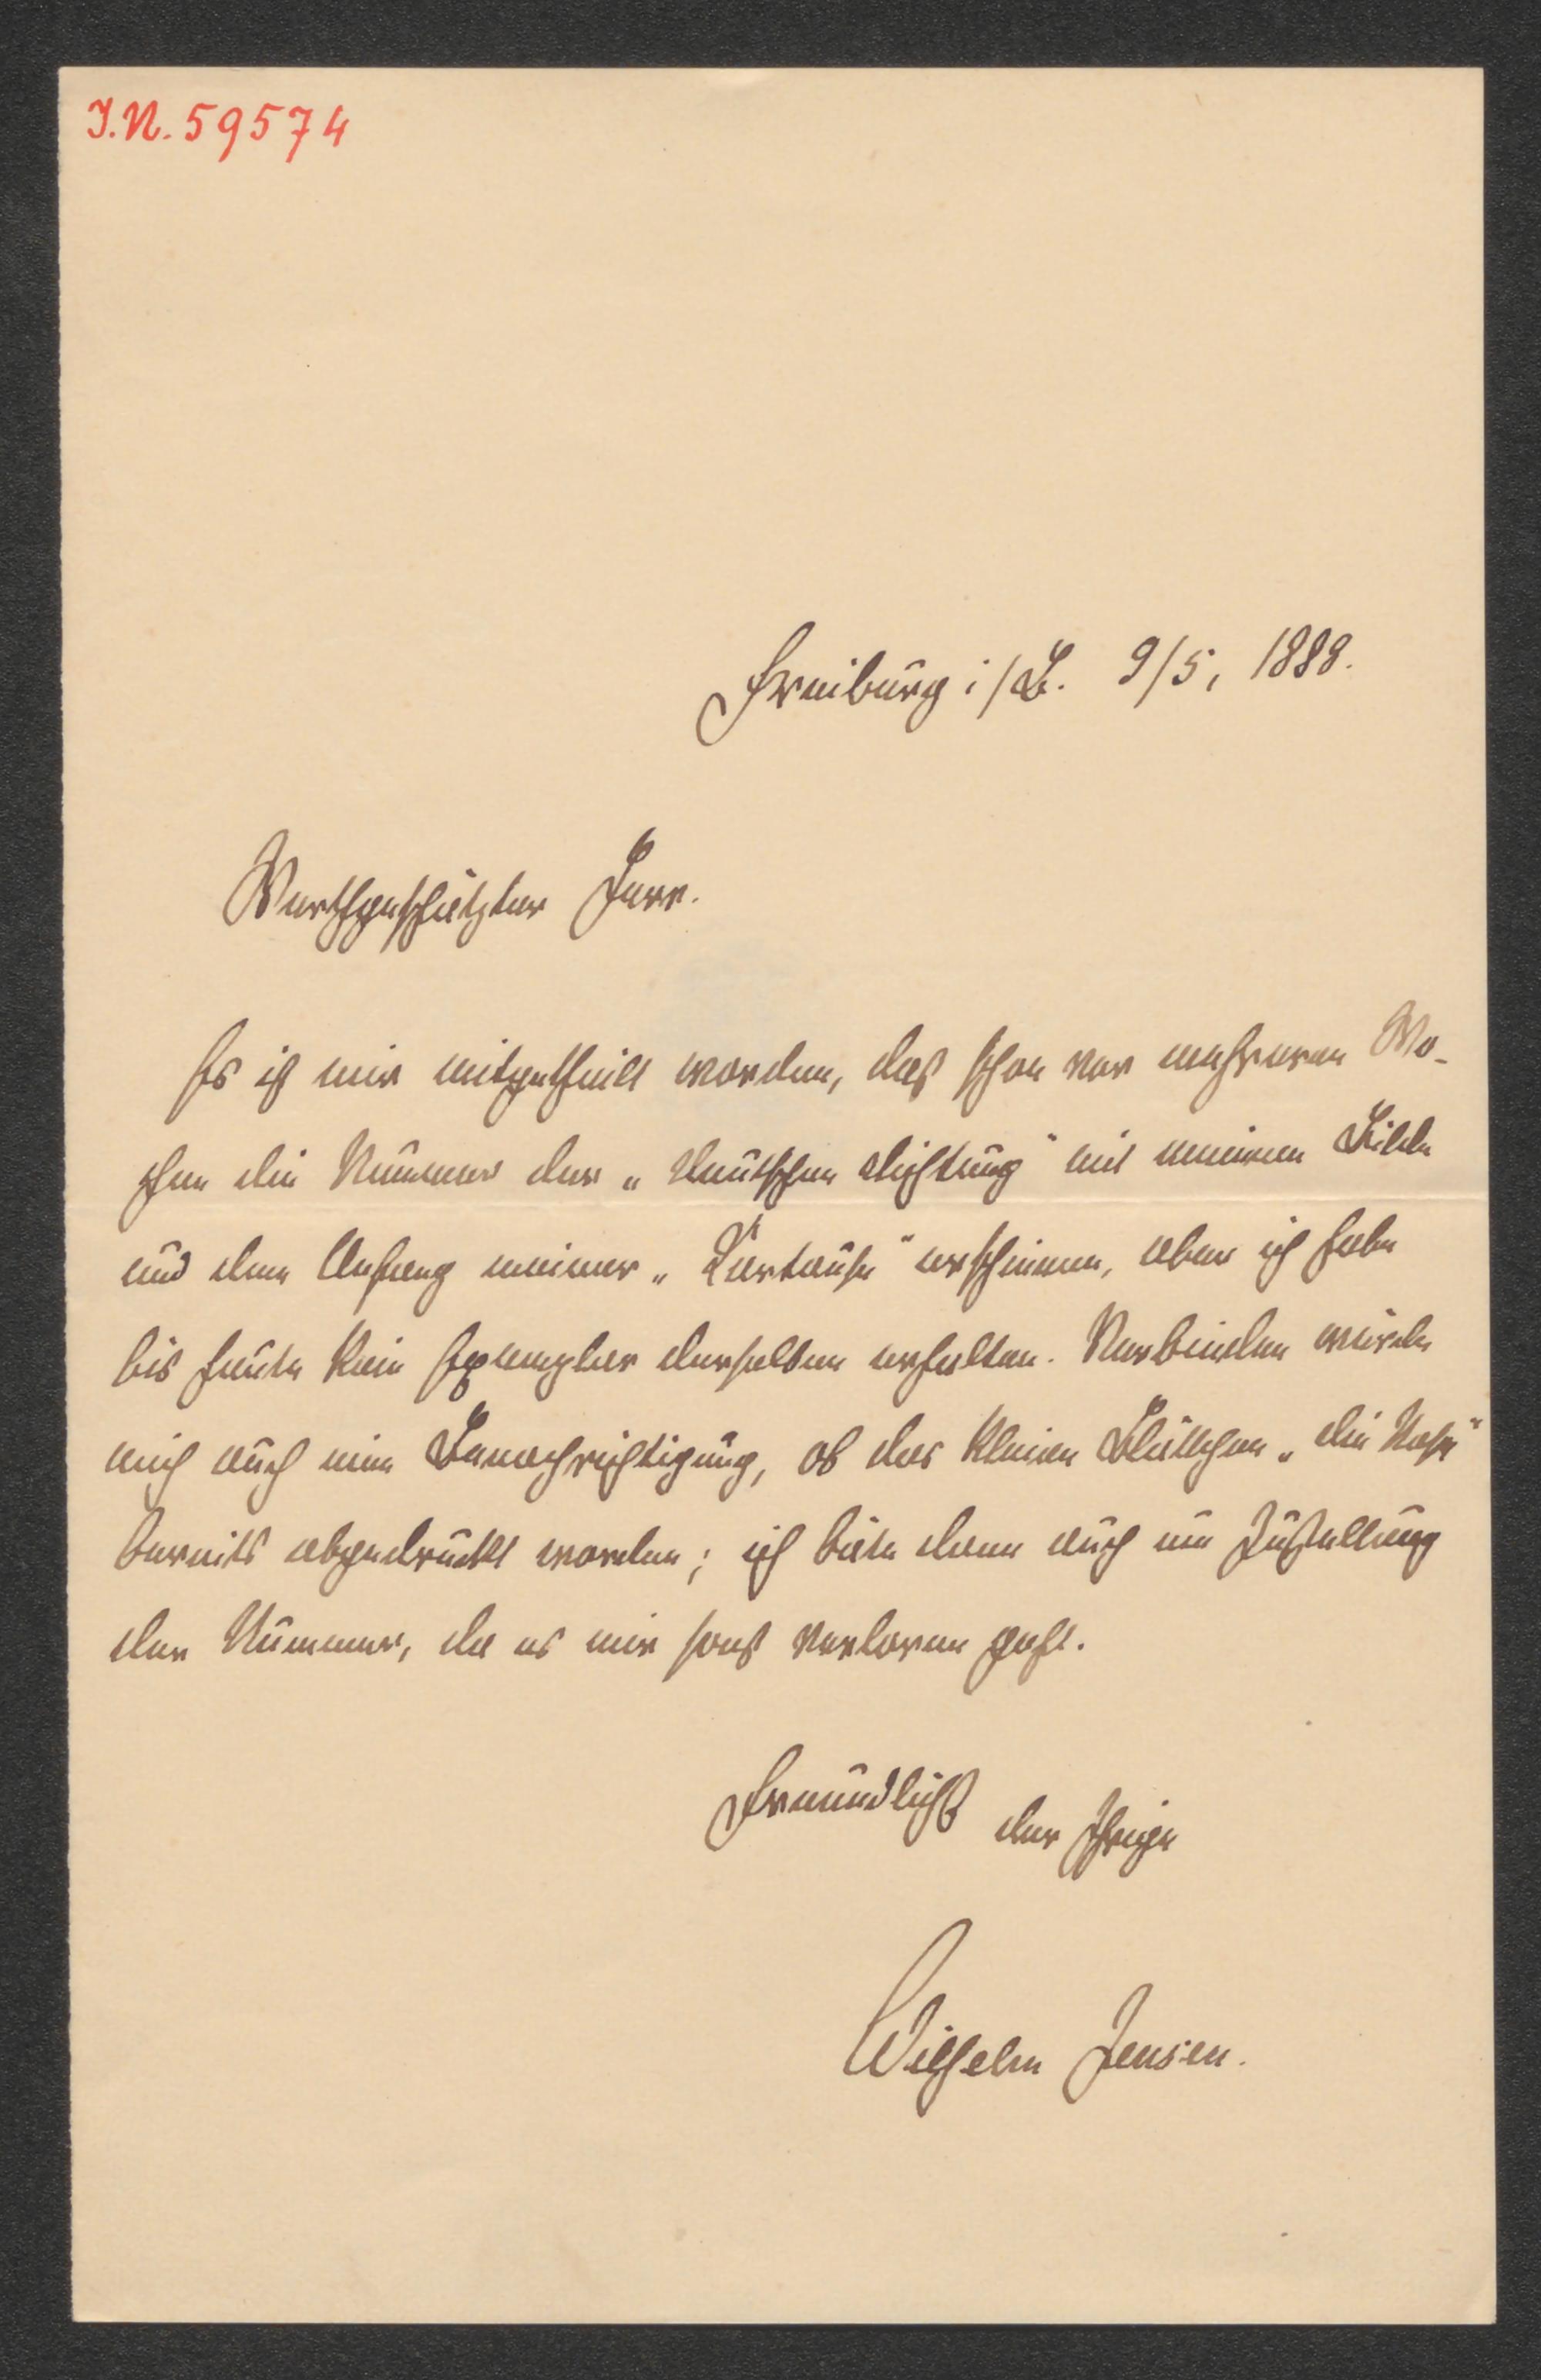 I.N. 59574
Freiburg i/B. 9/5, 1888.
Werthgeschätzter Herr.
Es ist mir mitgetheilt worden, daß schon vor mehreren Wo-
chen die Nummer der „Deutschen Dichtung" mit meinem Bilde
und dem Anfang meiner erschienen, aber ich habe
bis heute kein Exemplar derselben erhalten. Verbinden würde
mich auch eine Benachrichtigung, ob das kleine Blättchen „die
bereits abgedruckt worden; ich bitte dann auch um Zustellung
der Nummer, da es mir sonst verloren geht.
Freundlichst
der Ihrige
Wilhelm Jensen.